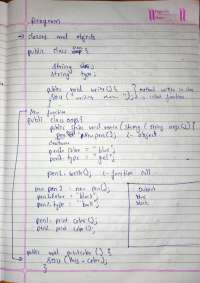 Program
→ classes and objects
public class pen {
String color;
String type;
public void write() { } method written in class
Sou ("writing
Main function
public class oops {
public static void main (String args[]) {
pen pen1 = new pen(); ← object
pen1.color = "blue";
pen1.type = "gel";
pen1.write(); ← function call
pen pen2 = new pen();
pen2.color = "black";
pen2.type = "ball";
Output
blue
black
pen1.printcolor();
pen2.printcolor();
public void printcolor() {
Sou (this.color);
}